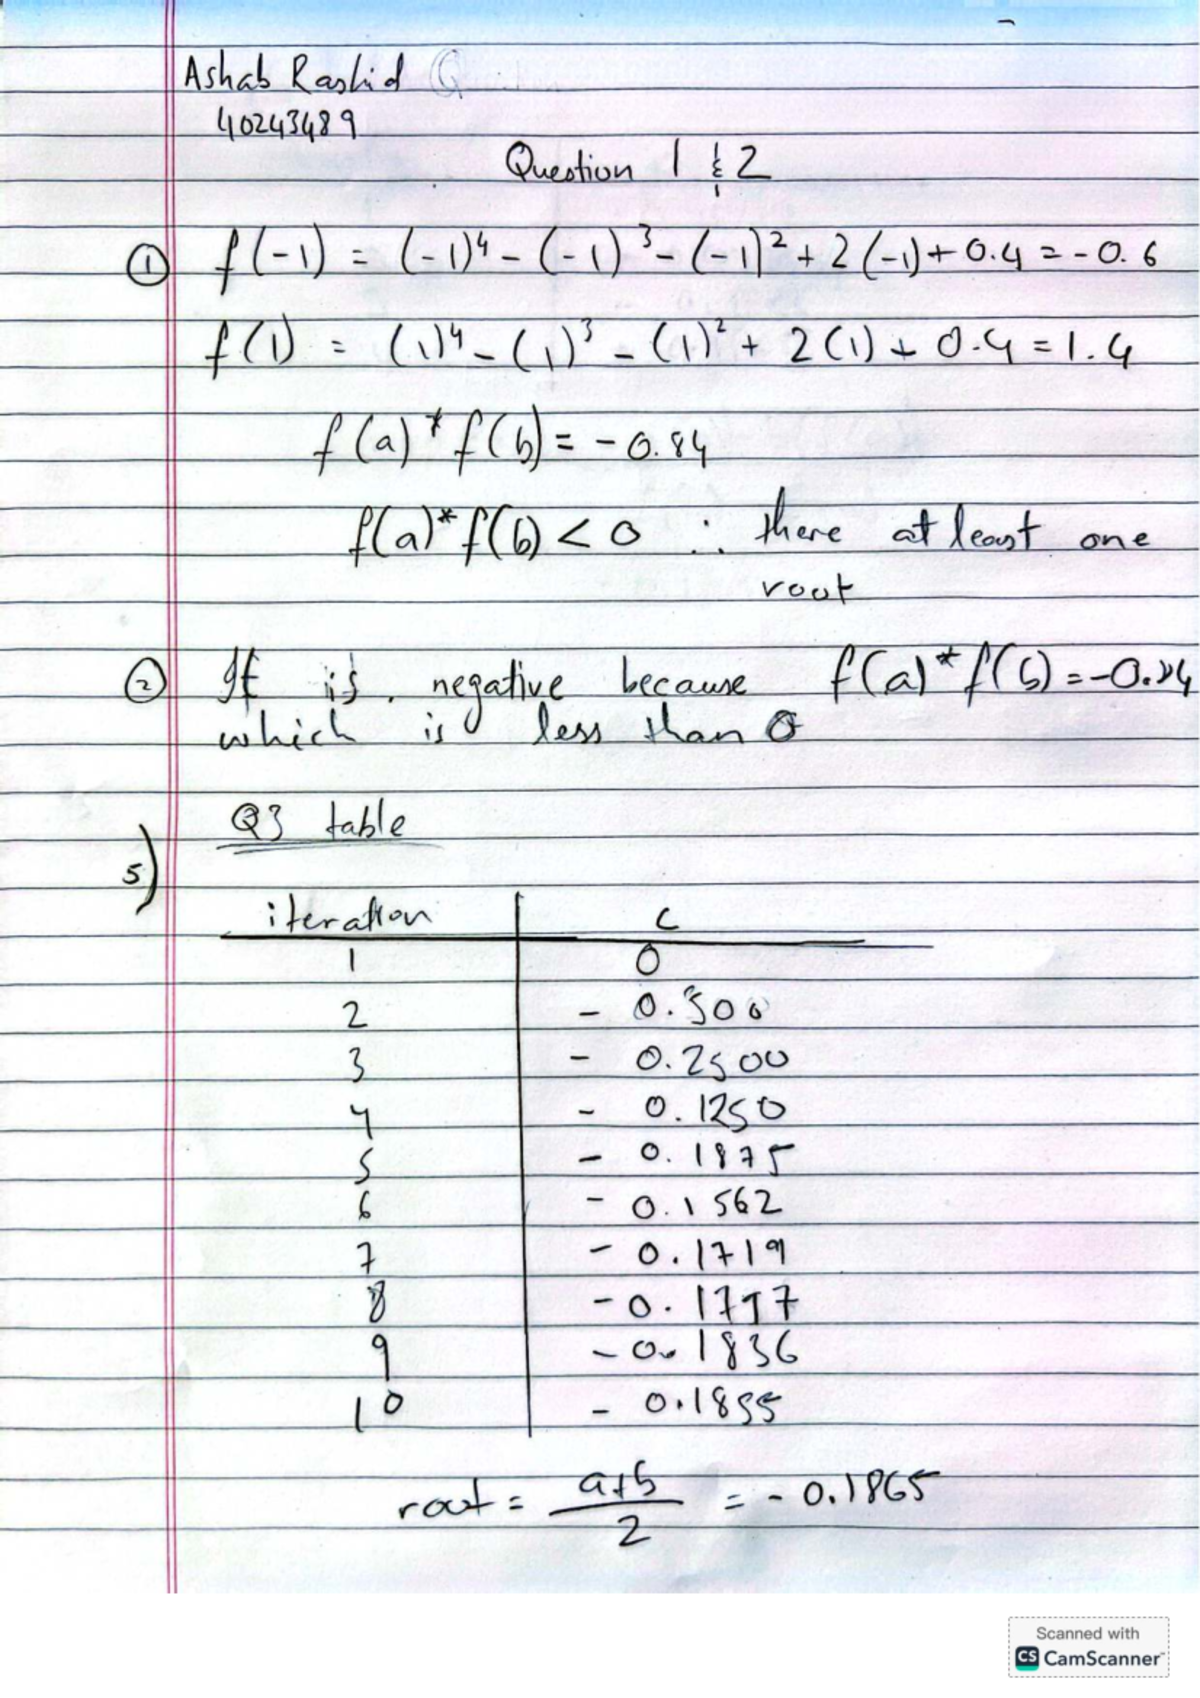 Ashab Rashid
40243489
Question 1 & 2
① f(-1) = (-1)⁴ - (-1)³ - (-1)² + 2(-1) + 0.4 = -0.6
f(1) = (1)⁴ - (1)³ - (1)² + 2(1) + 0.4 = 1.4
f(a) * f(b) = -0.84
f(a) * f(b) < 0 ∴ there at least one
root
② It is negative because f(a) * f(b) = -0.84
which is less than 0
Q3 table
5)
iteration c
1 0
2 - 0.500
3 - 0.2500
4 - 0.1250
5 - 0.1875
6 - 0.1562
7 - 0.1719
8 - 0.1797
9 - 0.1836
10 - 0.1855
root = a+b / 2 = - 0.1865
Scanned with
CS CamScanner